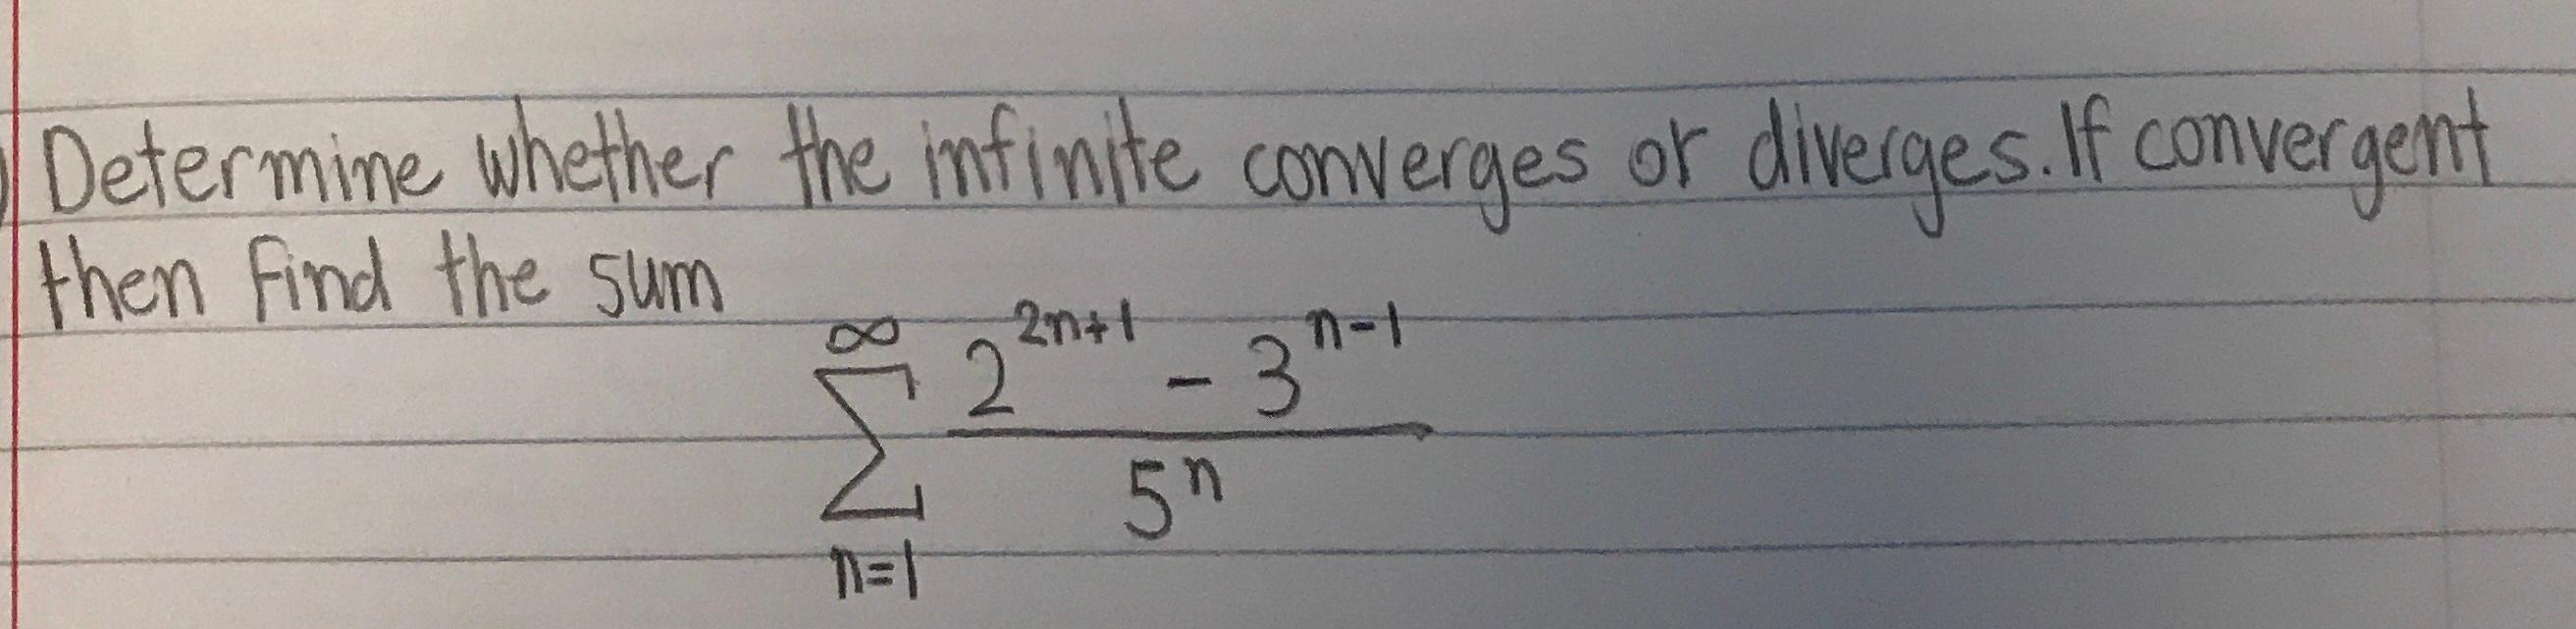 ) Determine whether the infinite converges or diverges. If convergent
then find the sum
∞
∑ (2^(2n+1) - 3^(n-1)) / 5^n
n=1